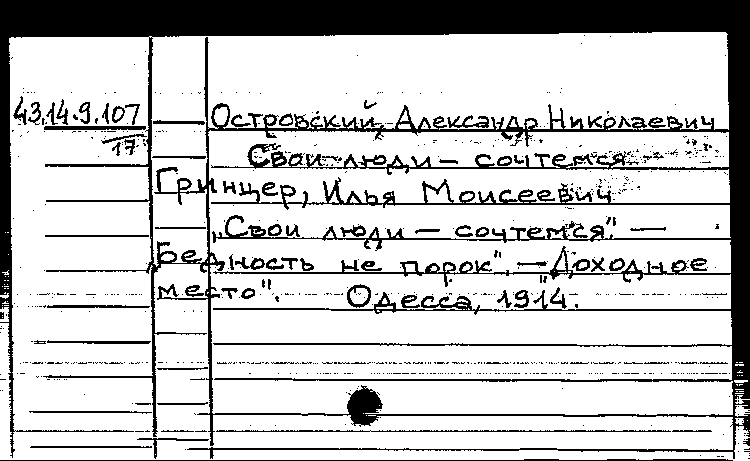 43.14.9.107
17
Островский, Александр Николаевич
Свои люди — сочтемся.
Гринцер, Илья Моисеевич
„Свои люди — сочтемся". —
„Бедность не порок". — „Доходное
место". Одесса, 1914.